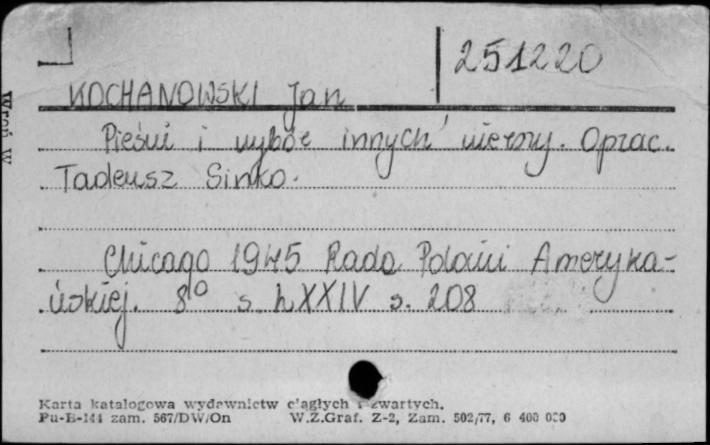 251220
KOCHANOWSKI Jan
Pieśni i wybór innych wierszy. Oprac.
Tadeusz Sinko.
Chicago 1945 Rada Polonii Ameryka-
ńskiej. 8° s. LXXIV s. 208
Karta katalogowa wydawnictw ciągłych i zwartych.
Pu-B-141 zam. 567/DW/On W.Z.Graf. Z-2, Zam. 502/77, 6 400 000